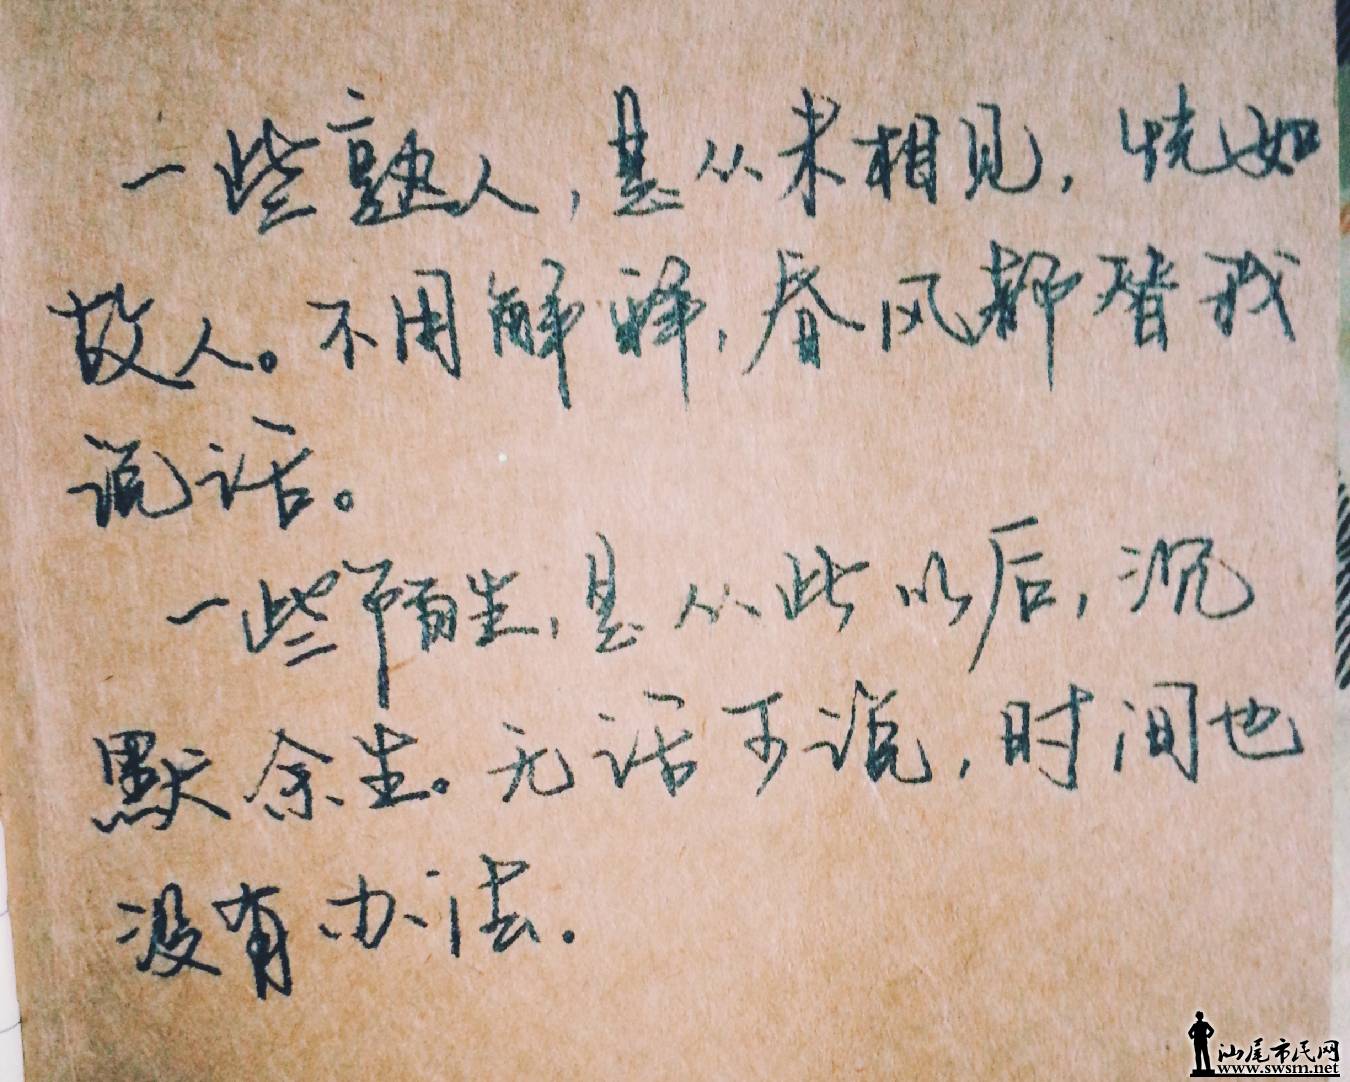 一些熟人,是从未相见,恍如
故人。不用解释,春风都替我
说话。
一些陌生,是从此以后,沉
默余生。无话可说,时间也
没有办法.
汕尾市民网
www.swsm.net